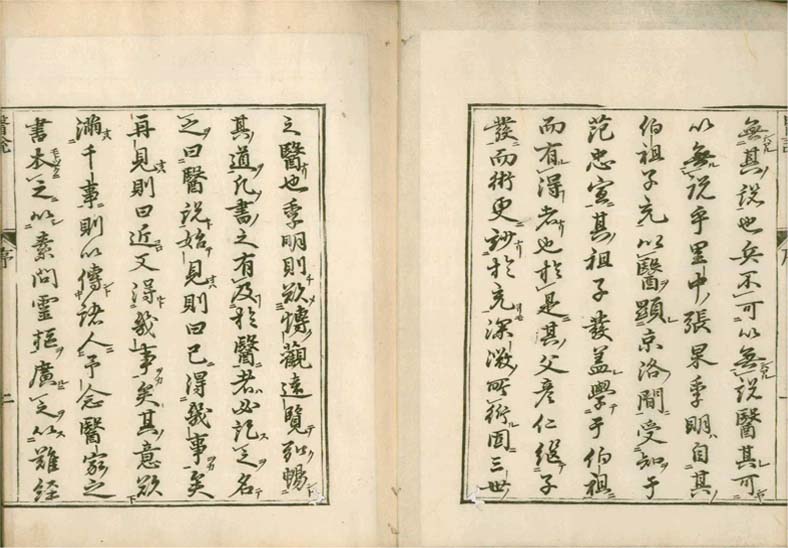 無其說也兵不可以無說醫其可
以無說乎里中張杲季明自其
伯祖子充以醫顯京洛間受知于
范忠宣其祖子發蓋學于伯祖
而有得者也於是其父彥仁繼子
發而術更妙於充深激所術固三世
之醫也季明則欲博觀遠覽弘暢
其道凡書之有及於醫者必記之名
之曰醫說始見則曰已得幾事矣
再見則曰近又得幾事矣其意欲
滿千事則以傳諸人予念醫家之
書本之以素問靈樞廣之以難經
醫說
序
二